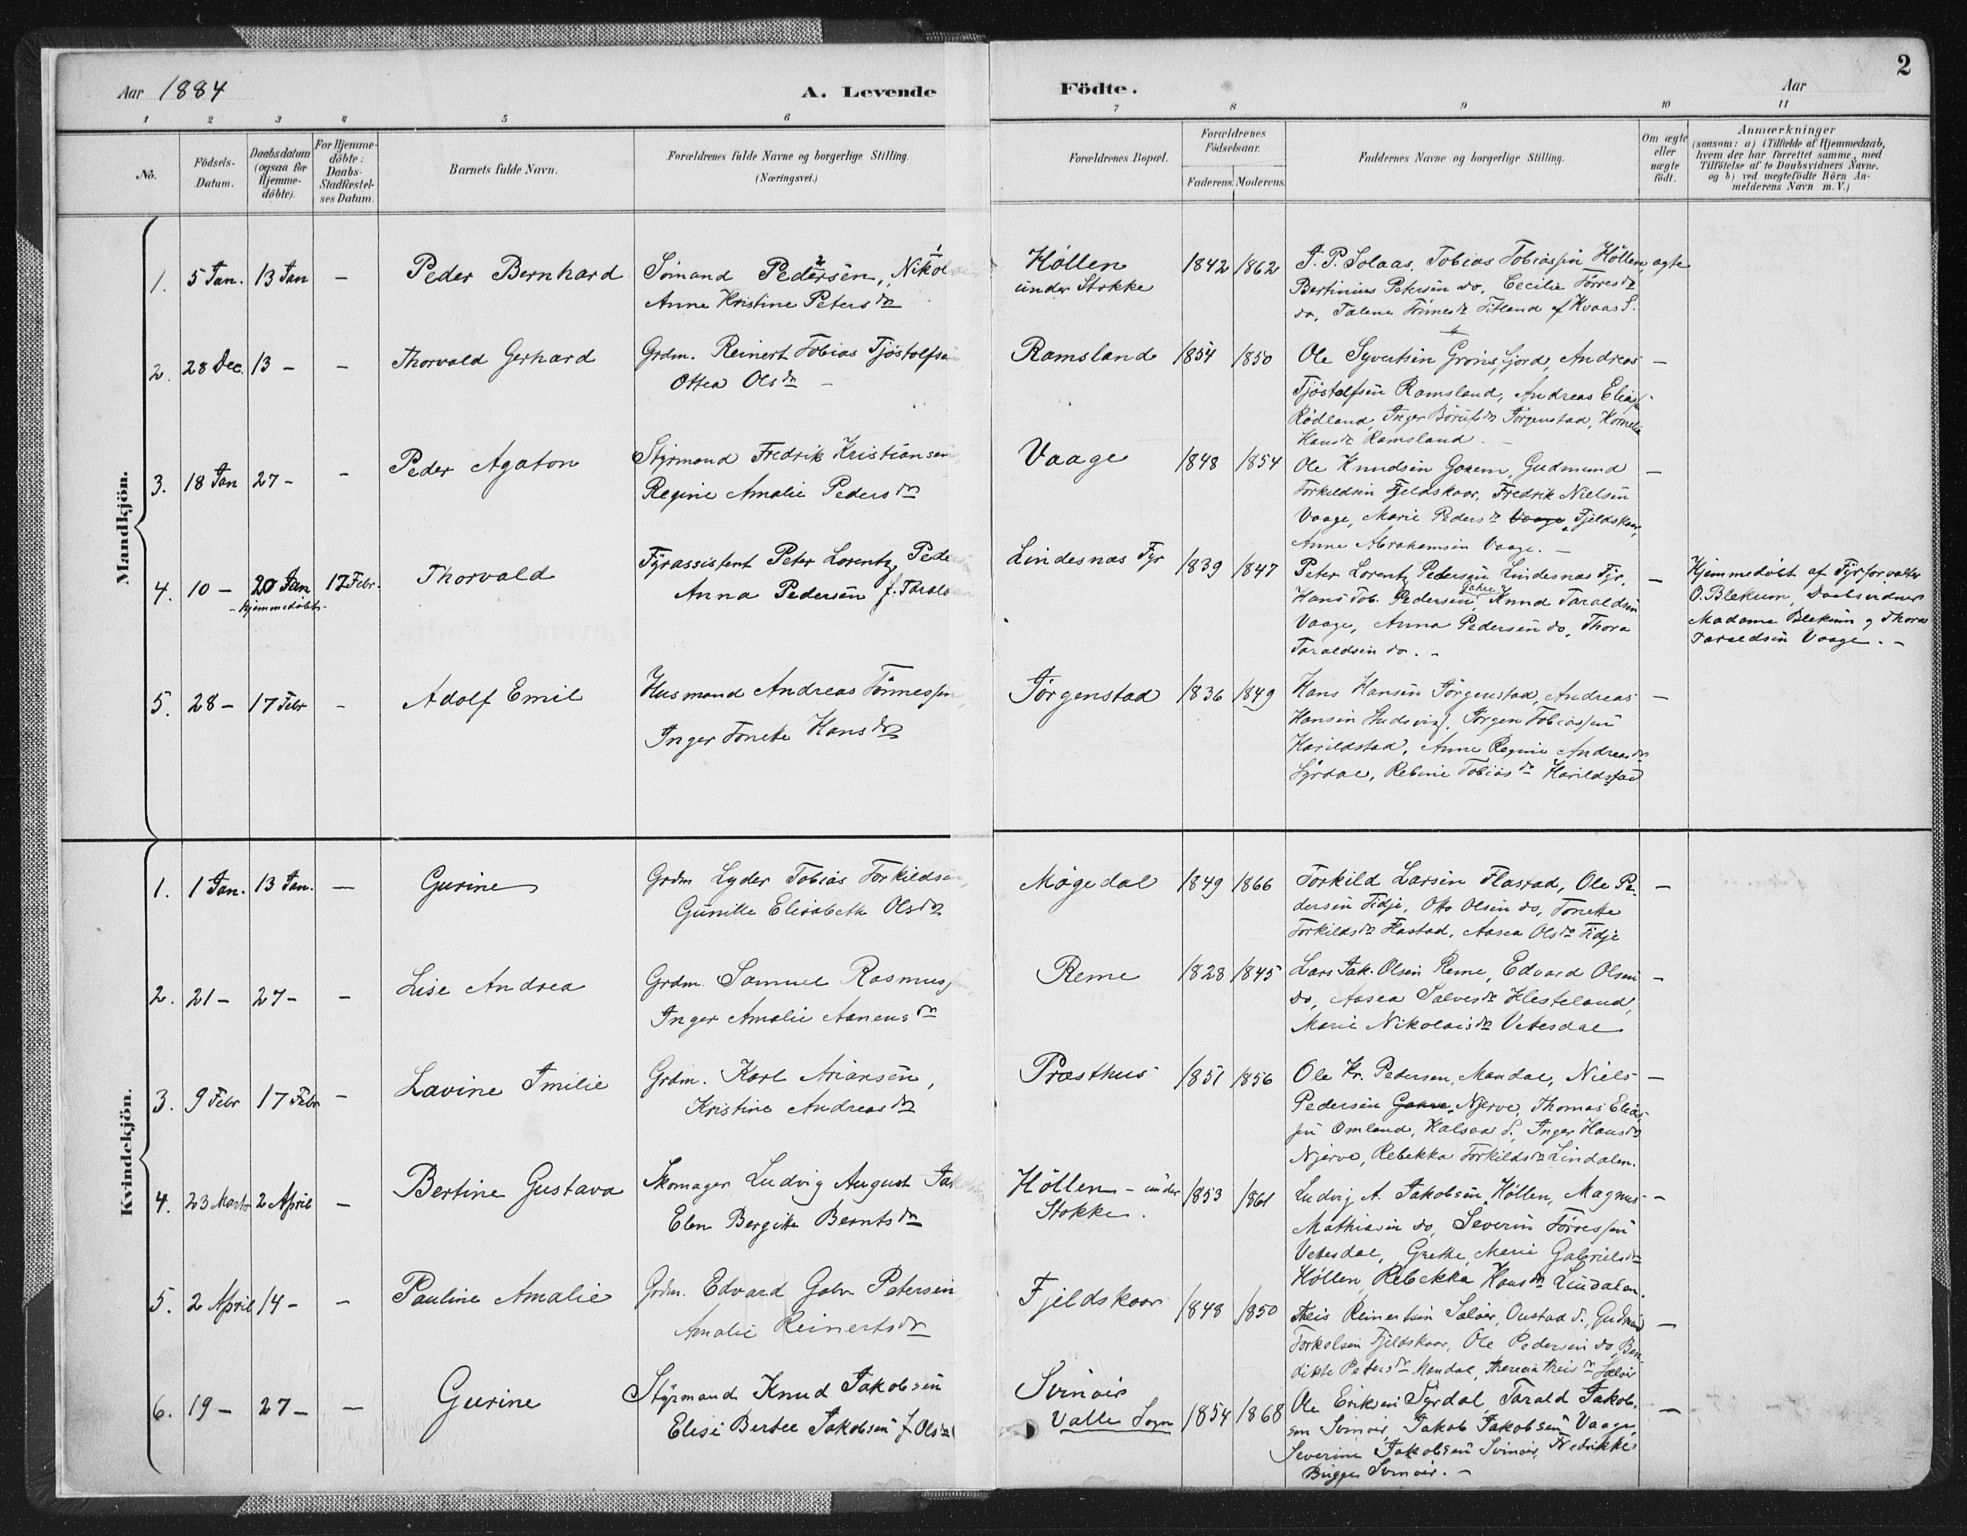 Aar 1884
A. Levende Födte.
Aar
2
1 2 3 4 5 6 7 8 9 10 11
No.
Födsels-Datum.
Daabsdatum (ogsaa for Hjemme-döbte).
For Hjemme-döbte: Daabs-Stadfæstel-ses Datum.
Barnets fulde Navn.
Forældrenes fulde Navne og borgerlige Stilling.
(Næringsvei.)
Forældrenes Bopæl.
Forældrenes Födselsaar.
Faderens. Moderens.
Faddernes Navne og borgerlige Stilling.
Om ægte eller uægte födt.
Anmærkninger
(saasom: a) i Tilfælde af Hjemmedaab, hvem der har forrettet samme, med Tilföielse af to Daabsvidners Navne, og b) ved uægtefödte Börn An-melderens Navn m. V.)
Mandkjön.
1. 5 Jan. 13 Jan – Peder Bernhard
Sømand Pedersen, Nikolai
Anne Kristine Petersdr
Høllen
under Stokke
1842 1862
J. P. Solaas, Tobias Tobiassen Høllen, ægte
Bertinius Petersen do, Cecilie Tørresdr
do, Talene Tønnesdr Fitland af Kvaas S.
2. 28 Dec. 13 – – Thorvald Gerhard
Grdm. Reinert Tobias Tjøstolfsen
Ottea Olsdr –
Ramsland 1854 1850
Ole Syvertsen Grønsfjord, Andreas –
Tjøstolfsen Ramsland, Andreas Eliass.
Rødland, Inger Børufsdr Jørgenstad, Kornelia
Hansdr Ramsland. –
3. 18 Jan 27 – – Peder Agaton
Styrmand Fredrik Kristiansen,
Regine Amalie Pedersdr
Vaage 1848 1854
Ole Knudsen Goxem, Gudmund –
Torkildsen Fjeldskaar, Fredrik Nielsen
Vaage, Marie Pedersdr Vaage, Fjeldskaar,
Anne Abrahamsen Vaage. –
4. 10 – 20 Jan 17 Febr. Thorvald
– hjemmedøbt –
Fyrassistent Peter Lorentz Pedersen
Anna Pedersen f. Taraldsen
Lindesnæs Fyr 1839 1847
Peter Lorentz Pedersen Lindesnæs Fyr, –
Hans Tob. Pedersen Gahre, Knud Taraldsen
Vaage, Anna Pedersen do, Thora
Taraldsen do. –
Hjemmedøbt af Fyrforvalter
O. Blekum, Daabsvidner
Madame Blekum og Thora
Taraldsen Vaage. –
5. 28 – 17 Febr – Adolf Emil
Husmand Andreas Tønnessen,
Inger Tonette Hansdr
Jørgenstad 1836 1849
Hans Hansen Jørgenstad, Andreas –
Hansen Ludsvig, Jørgen Tobiassen
Harildstad, Anne Regine Andreasdr
Syrdal, Rebine Tobiasdr Harildstad
Kvindekjön.
1. 1 Jan. 13 Jan. – Gurine
Grdm Lyder Tobias Torkildsen,
Gunille Elisabeth Olsdr
Møgedal 1849 1866
Torkild Larsen Flastad, Ole Pe- –
dersen Tidje, Otto Olsen do, Tonette
Torkildsdr Flastad, Aasea Olsdr Tidje
2. 21 – 27 – – Lise Andrea
Grdm. Samuel Rasmussen
Inger Amalie Aanensdr
Reme 1828 1845
Lars Jak. Olsen Reme, Edvard Olsen –
do, Aasea Salvesdr Klesteland,
Marie Nikolaisdr Vetesdal
3. 9 Febr 17 Febr – Lavine Emilie
Grdm. Karl Ariansen,
Kristine Andreasdr
Præsthus 1851 1856
Ole Kr. Pedersen, Mandal, Niels –
Pedersen Gahre, Njerve, Thomas Elias-
sen Omland, Halsaa S., Inger Hansdr
Njerve, Rebekka Torkildsdr Lindalen.
4. 23 Marts 2 April – Bertine Gustava
Skomager Ludvig August Jakobsen
Elen Bergitte Berntsdr
Høllen – under
Stokke.
1853 1861
Ludvig A. Jakobsen Høllen, Magnus –
Mathiasen do, Severin Tørressen
Vetesdal, Grethe Marie Gabrielsdr
Høllen, Rebekka Hansdr Lindalen.
5. 2 April 14 – – Pauline Amalie
Grdm. Edvard Gabr Petersen
Amalie Reinertsdr
Fjeldskaar 1848 1850
Theis Reinertsen Salvær, Oustad S., Gudmund –
Torkelsen Fjeldskaar, Ole Pedersen do, Ben-
dikte Petersdr Mandal,
6. 19 – 27 – – Gurine
Styrmand Knud Jakobsen
Elise Bertee Jakobsen f. Olsdr
Svinøir
Valle Sogn
1854 1868
Ole Eriksen Syrdal, Tarald Jakob- –
sen Svinøir, Jakob Jakobsen Vaage,
Severine Jakobsen Svinøir, Nedrikke
Bugge Svinøir. –